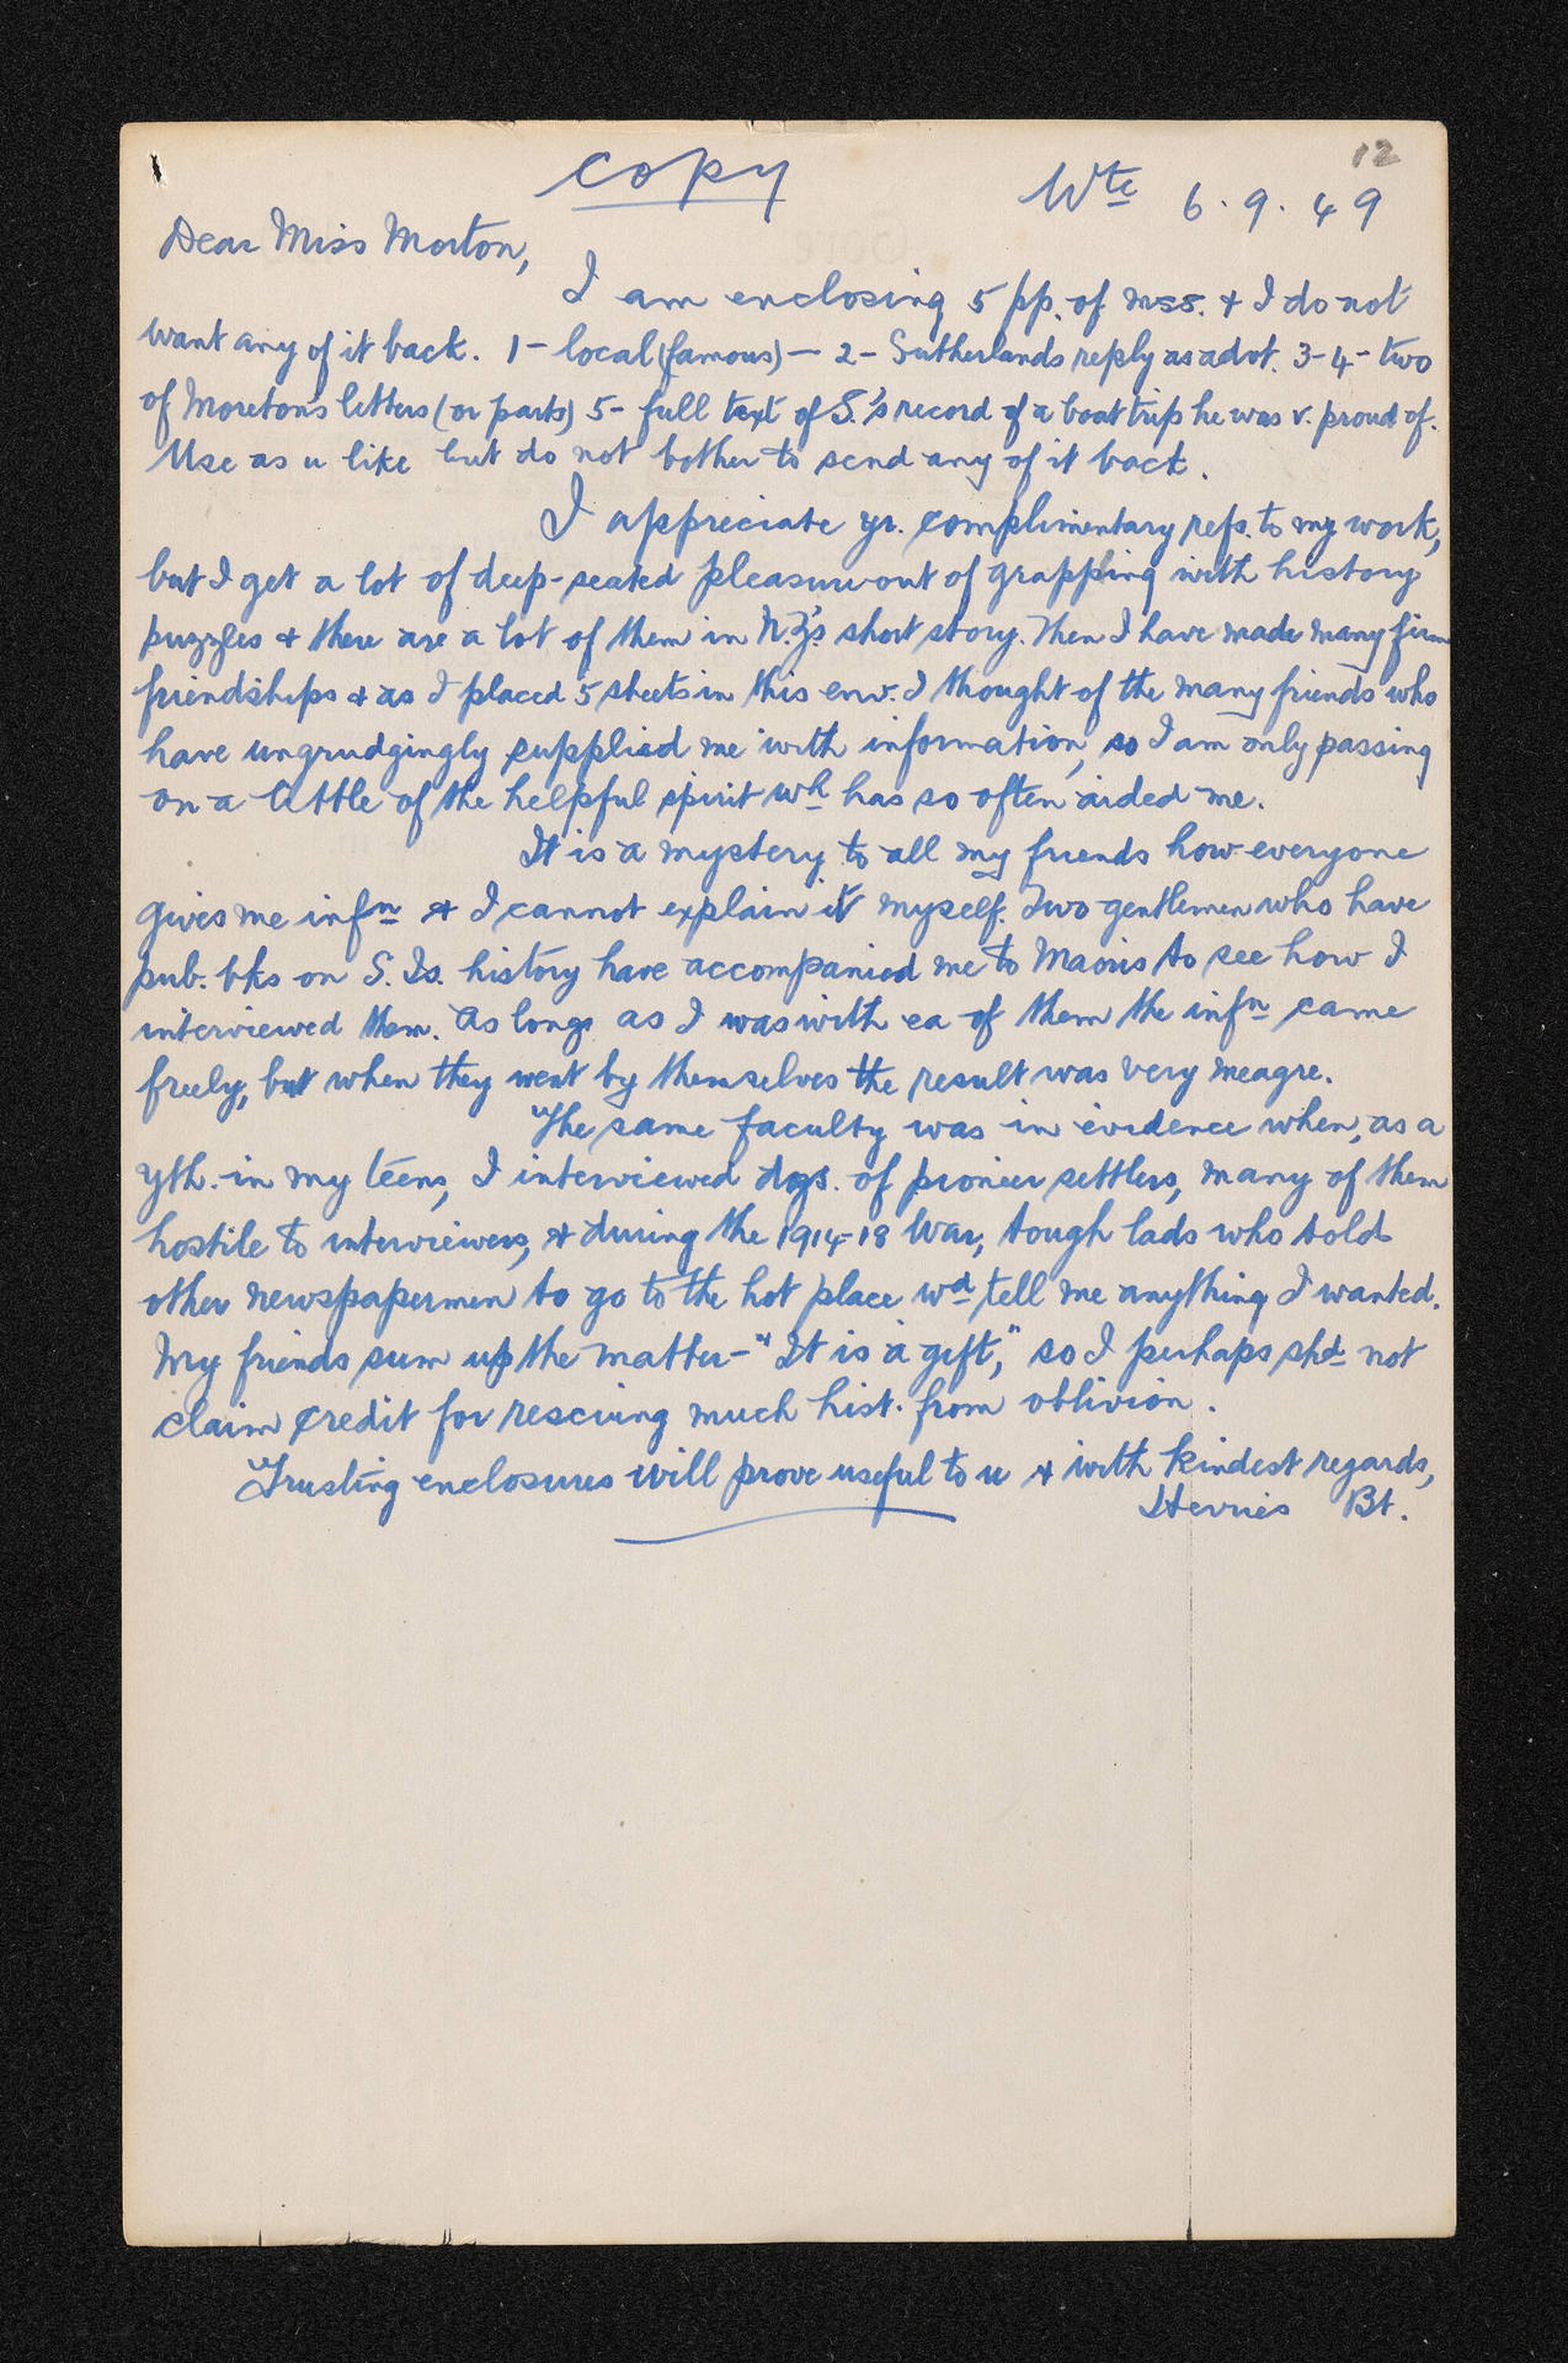 12
copy
Wte 6.9.49
Dear Miss Morton,
I am enclosing 5 pp. of mss. & I do not
want any of it back. 1 - local (famous) - 2 - Sutherlands reply as advt. 3-4 - two
of Moreton's letters (or parts) 5 - full text of S.'s record of a boat trip he was v. proud of.
Use as u like but do not bother to send any of it back.
I appreciate yr. complimentary refs. to my work,
but I get a lot of deep-seated pleasure out of grappling with history
puzzles & there are a lot of them in N.Z's. short story. Then I have made many firm
friendships & as I placed 5 sheets in this env. I thought of the many friends who
have ungrudgingly supplied me with information, so I am only passing
on a little of the helpful spirit wh has so often aided me.
It is a mystery to all my friends how everyone
gives me infn & I cannot explain it myself. Two gentlemen who have
pub. bks on S. Is. history have accompanied me to Maoris to see how I
interviewed them. As long as I was with ea of them the infn came
freely, but when they went by themselves the result was very meagre.
The same faculty was in evidence when, as a
yth. in my teens, I interviewed dozs. of pioneer settlers, many of them
hostile to interviewers, & during the 1914-18 War, tough lads who told
other newspapermen to go to the hot place wd tell me anything I wanted.
My friends sum up the matter - "It is a gift," so I perhaps shd not
claim credit for rescuing much hist. from oblivion.
Trusting enclosures will prove useful to u & with kindest regards,
Herries Bt.